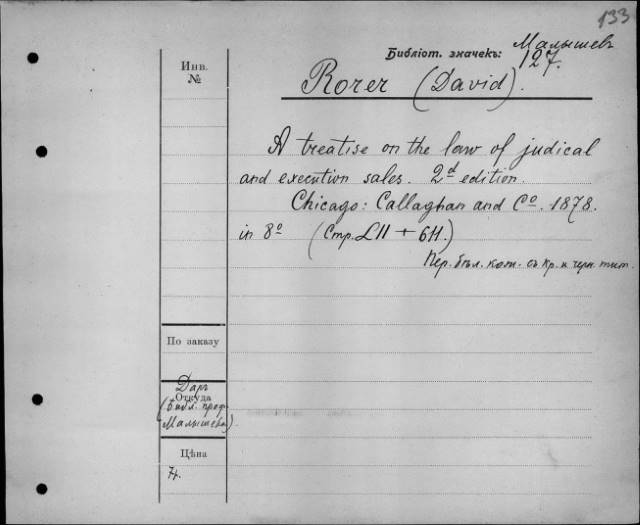 133
Малышев
Библiот. значекъ: 127.
Инв.
№
Rorer (David).
A treatise on the law of judical
and execution sales. 2d edition.
Chicago: Callaghan and Co. 1878.
in 8o (Стр. LII + 611.)
Пер. бѣл. кож. съ кр. и черн. тит.
По заказу
Даръ
Откуда
(библ. проф.
Малышева)
Цѣна